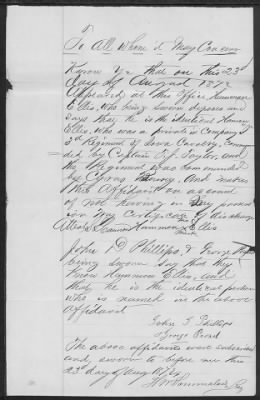 To All whom it May Concern
Know Ye that on this 23d
day of August 1872
Appeared at this Office Hammon
Ellis, who being sworn deposes and
says that he is the identical Hammon
Ellis, who was a private in Company
3d Regiment of Iowa Cavalry, Comman
ded by Captain Taylor, and
the Regiment was Commanded
by Cyrus Bussey. And makes
this Affidavit on account
of not having in my possess
ion my Certificate of discharge
Hammon Ellis
John D Phillips, & George
being sworn say that they
Know Hammon Ellis, and
that he is the identical person
who is named in the above
Affidavit
John D Phillips
George
The above affidavits were subscribed
and sworn to before me this
23d day of Aug